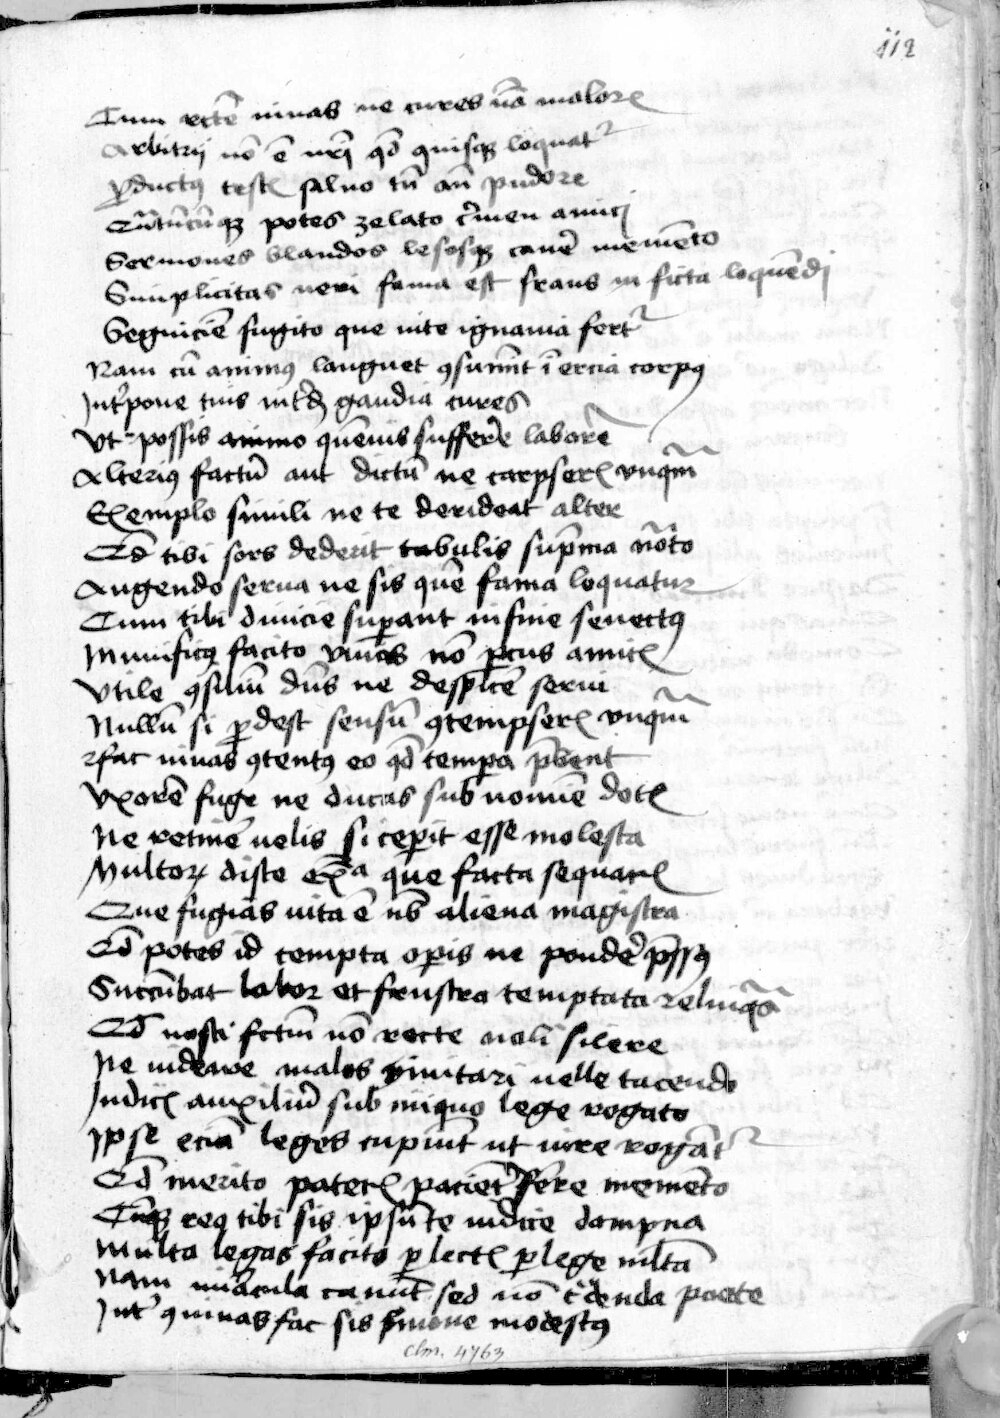 112
Cum recte viuas ne cures v̄ba malorꝝ
Arbitrij nō ē nr̄i qd̄ quisqꝫ loquatr̉
Ꝓductꝰ testꝭ saluo tn̄ an̄ pudore
Qn̄tūcūqꝫ potes zelato c̉men amici
Sermones blandos lesosqꝫ cauē memēto
Simplicitas veri fama est fraus in ficta loquēdi
Segniciē fugito que vite ignauia fertr̉
Nam cū animꝰ languet ꝯsumīt īercia corpꝰ
Int̉pone tuis int̉dꝫ gaudia cures
Vt possis animo quēuis sufferre laborē
Alteriꝰ factū aut dictū ne carpserꝭ vnqm̄
Exemplo simili ne te derideat alter
Qd̄ tibi sors dederit tabulis sup̄ma nōto
Augendo serua ne sis quē fama loquatur
Cum tibi diuicie suꝑant in fine senectꝰ
Munificꝰ facito viuas nō ꝑcus amicꝭ
Vtile ꝯsiliū dn̄s ne despice serui
Nullū si ꝓdest sensū ꝯtempserꝭ vnqm̄
fac viuas ꝯtentꝰ eo qd̄ tempora p̄bent
Vxorē fuge ne ducas sub nomīe dotꝭ
Ne retinē velis si ceperit esse molesta
Multorꝝ disce ex̄ᵃ que facta sequarꝭ
Que fugias vita ē nb̄ aliena magistra
Qd̄ potes id tempta operis ne pondē p̄ssꝰ
Succūbat labor et frustra temptata relinqᵃs
Qd̄ nosti fctm̄ nō recte noli silere
Ne videare malos imitari velle tacendo
Iudicꝭ auxiliū sub iniquo lege rogato
Ipse eciā leges cupiūt ut iure rogātr̉
Qd̄ merito paterꝭ paciēt̉ ferre memēto
Cūqꝫ reꝰ tibi sis ipsū te iudice dampna
Multa legas facito ꝑlectꝭ ꝑlege mltā
Nam mirācula canūt sed nō c̉denda poete
Int̉ ꝯuiuas fac sis s̉mone modestꝰ
Clm. 4763